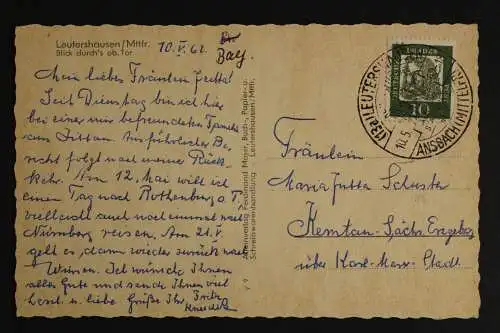 Leutershausen/Mttfr.
Blick durch's ob. Tor
10.V.62.
Bay.
Mein liebes Fräulein Jutta!
Seit Dienstag bin ich hier
bei einer mir befreundeten Familie
aus Zittau. Ausführlicher Be-
richt folgt nach meiner Rück-
kehr. Am 12. Mai will ich
einen Tag nach Rothenburg o. T.
vielleicht auch noch einmal nach
Nürnberg reisen. Am 21.V.
geht es, dann wieder zurück nach
Ich wünsche Ihnen
alles Gute und sende Ihnen viel
herzl. u. liebe Grüße Ihr Fritz
Aufn. u. Verlag Ferdinand Majer, Buch-, Papier- u.
Schreibwarenhandlung Leutershausen/Mttfr.
(13a) LEUTERSHAUSEN
ANSBACH
10.5.
DEUTSCHE BUNDESPOST
10
Fräulein
Maria Jutta Schuster
Kemtau Sächs. Erzgeb.
über Karl-Marx-Stadt